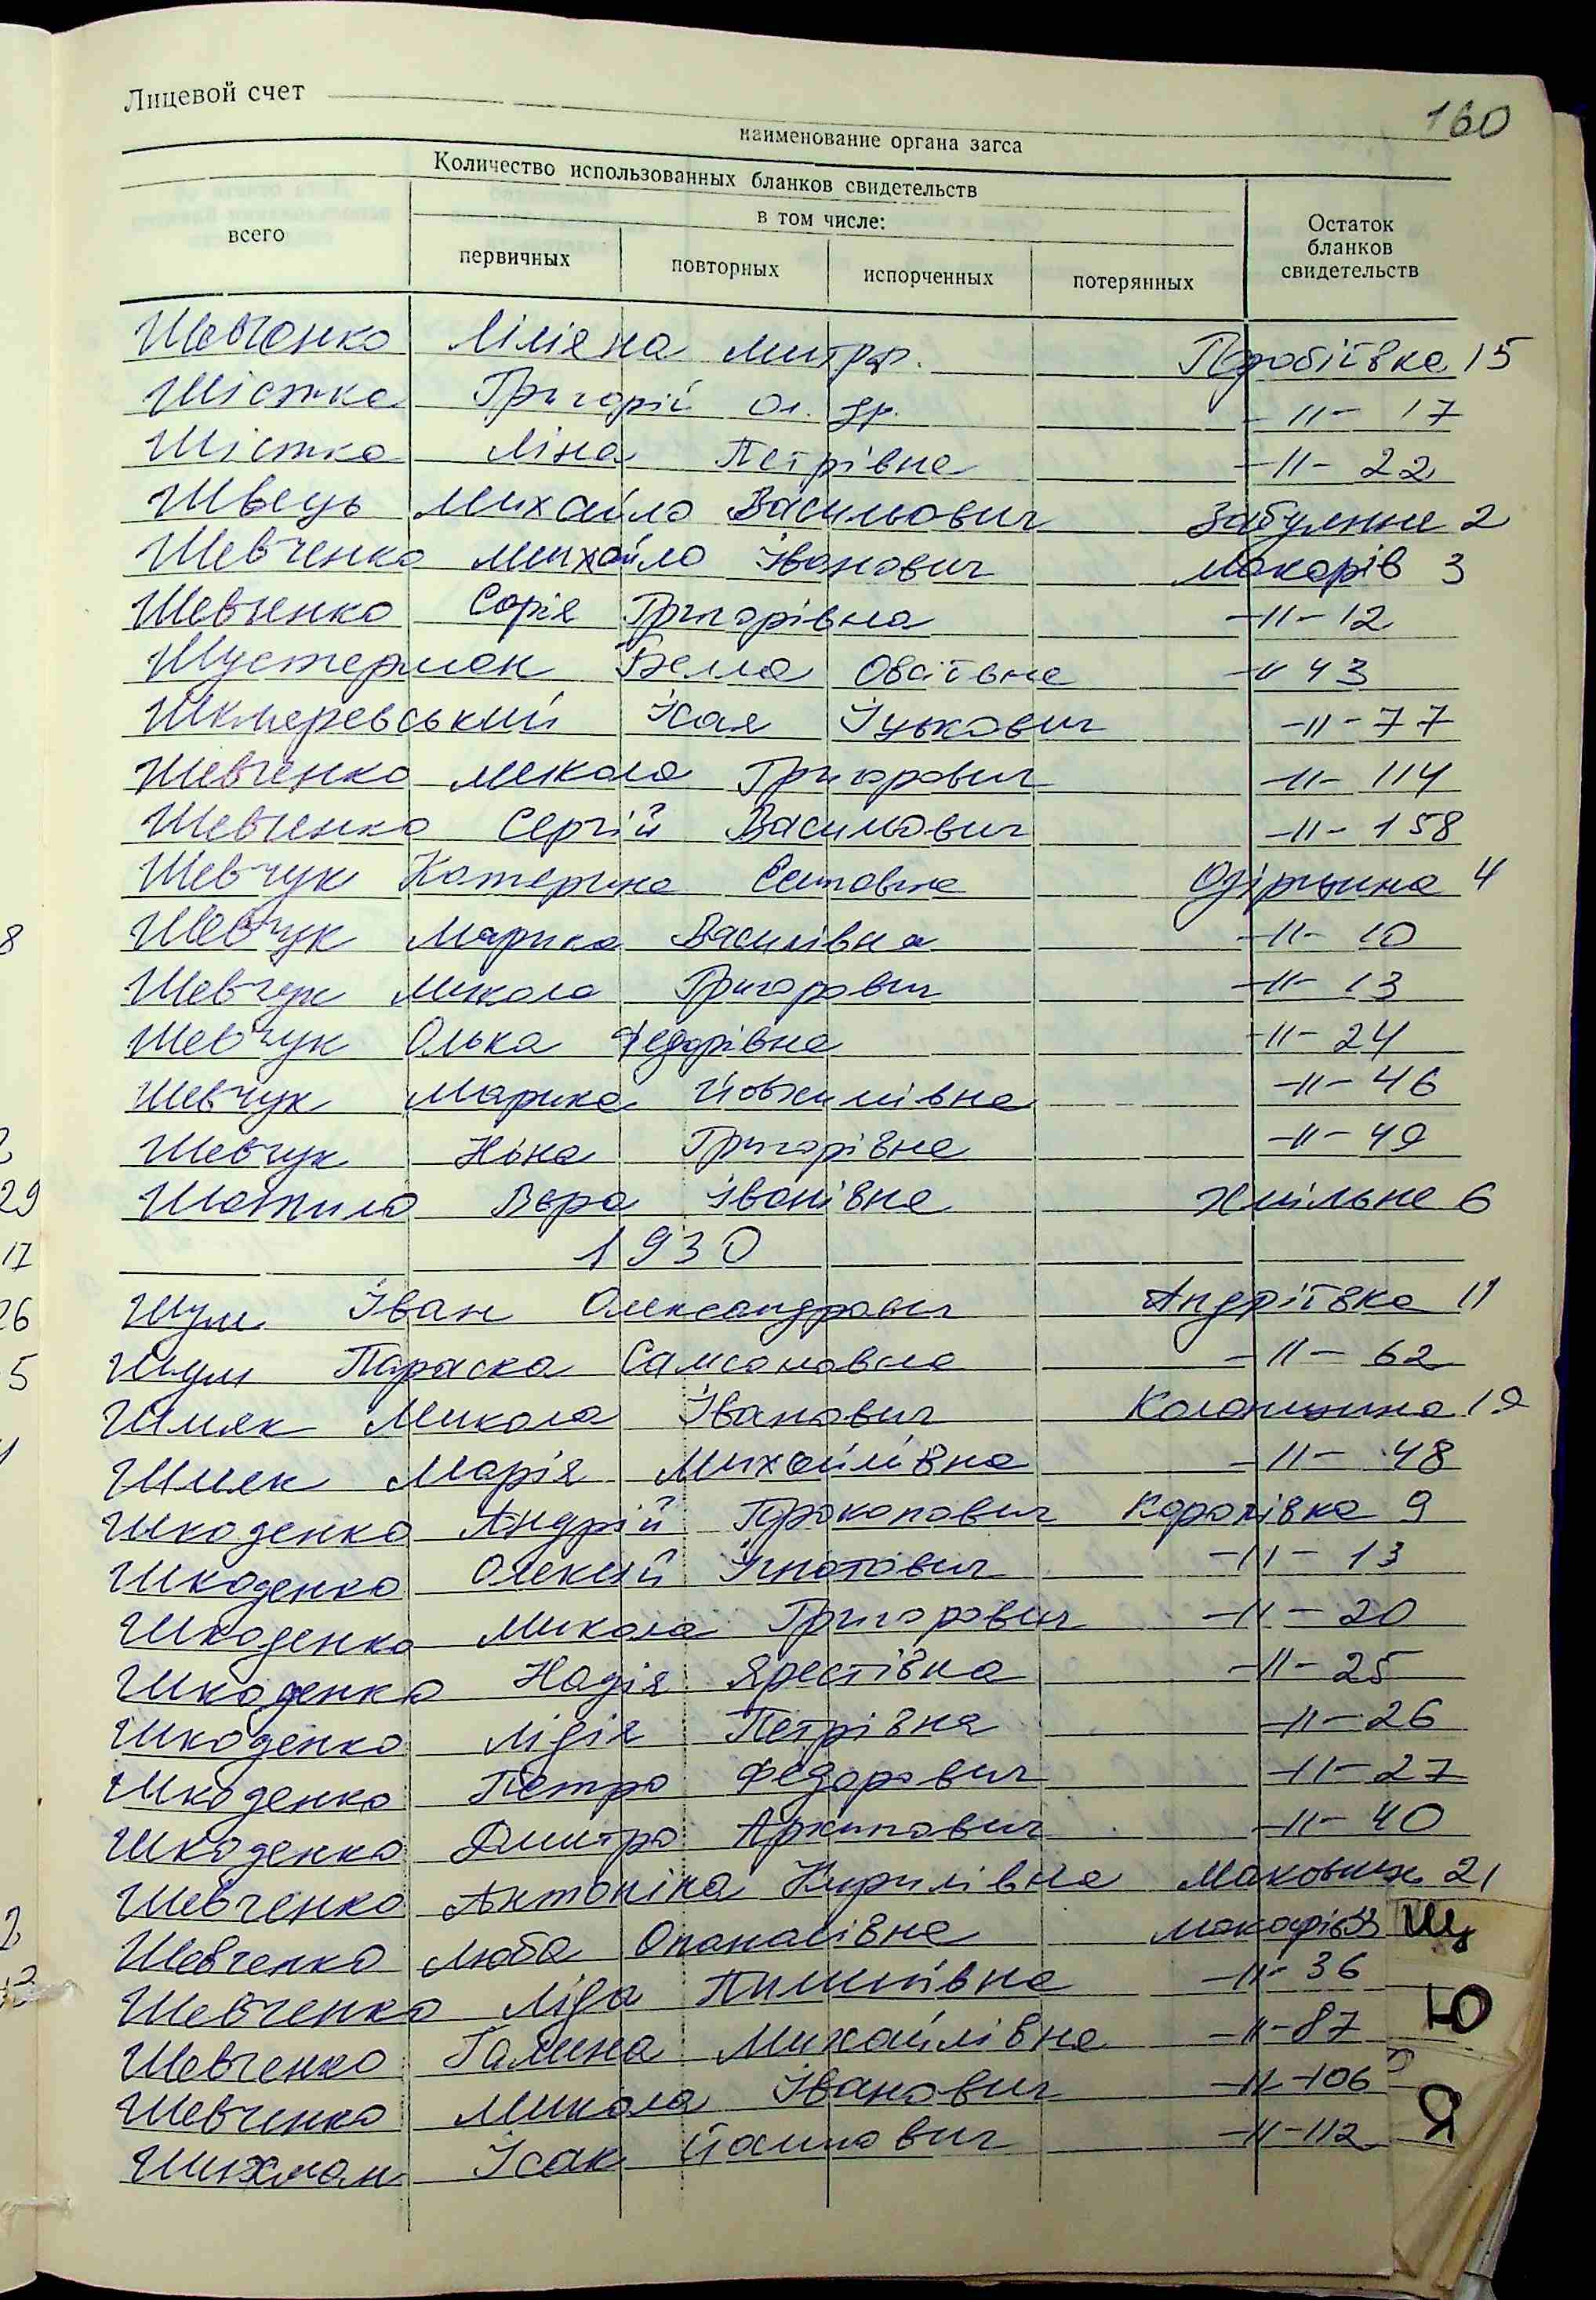 160
Лицевой счет
наименование органа загса
Количество использованных бланков свидетельств
в том числе:
всего
первичных
повторных
испорченных
потерянных
Остаток бланков свидетельств
Шевченко Ліліяна Митроф. 15
Шістка Григорій Ол. др. -11- 17
Шістка Ліна Петрівна -11- 22
Швець Михайло Васильович Забуяння 2
Шевченко Михайло Іванович Макарів 3
Шевченко Софія Григорівна -11- 12
Шустерман Белла Овсіївна -11 43
Ісая Іцькович -11- 77
Шевченко Микола Григорович -11- 114
Шевченко Сергій Васильович -11- 158
Шевчук Катерина Єсиповна 4
Шевчук Марика Василівна -11- 10
Шевчук Микола Григорович -11- 13
Шевчук Олька Федорівна -11- 24
Шевчук Марика -11- 46
Шевчук Ніна Григорівна -11- 49
Шатило Вєра Іванівна Хмільна 6
1930
Шум Іван Олександрович Андріївка 11
Шум Параска Самсоновна -11- 62
Шмяк Микола Іванович Колонщина 19
Шмяк Марія Михайлівна -11- 48
Шкоденко Андрій Прокопович Королівка 9
Шкоденко Олексій Ігнатович -11- 13
Шкоденко Микола Григорович -11- 20
Шкоденко Надія Ярестівна -11- 25
Шкоденко Лідія Петрівна -11- 26
Шкоденко Петро Федорович -11- 27
Шкоденко Дмитро Архипович -11- 40
Шевченко Антоніна Кирилівна Маковище 21
Шевченко Люба Опанасівна Макарів
Шевченко Ліда Пилипівна -11- 36
Шевченко Галина Михайлівна -11- 87
Шевченко Микола Іванович -11- 106
Шихман Ісак Йосипович -11- 112
Щ
Ю
Я